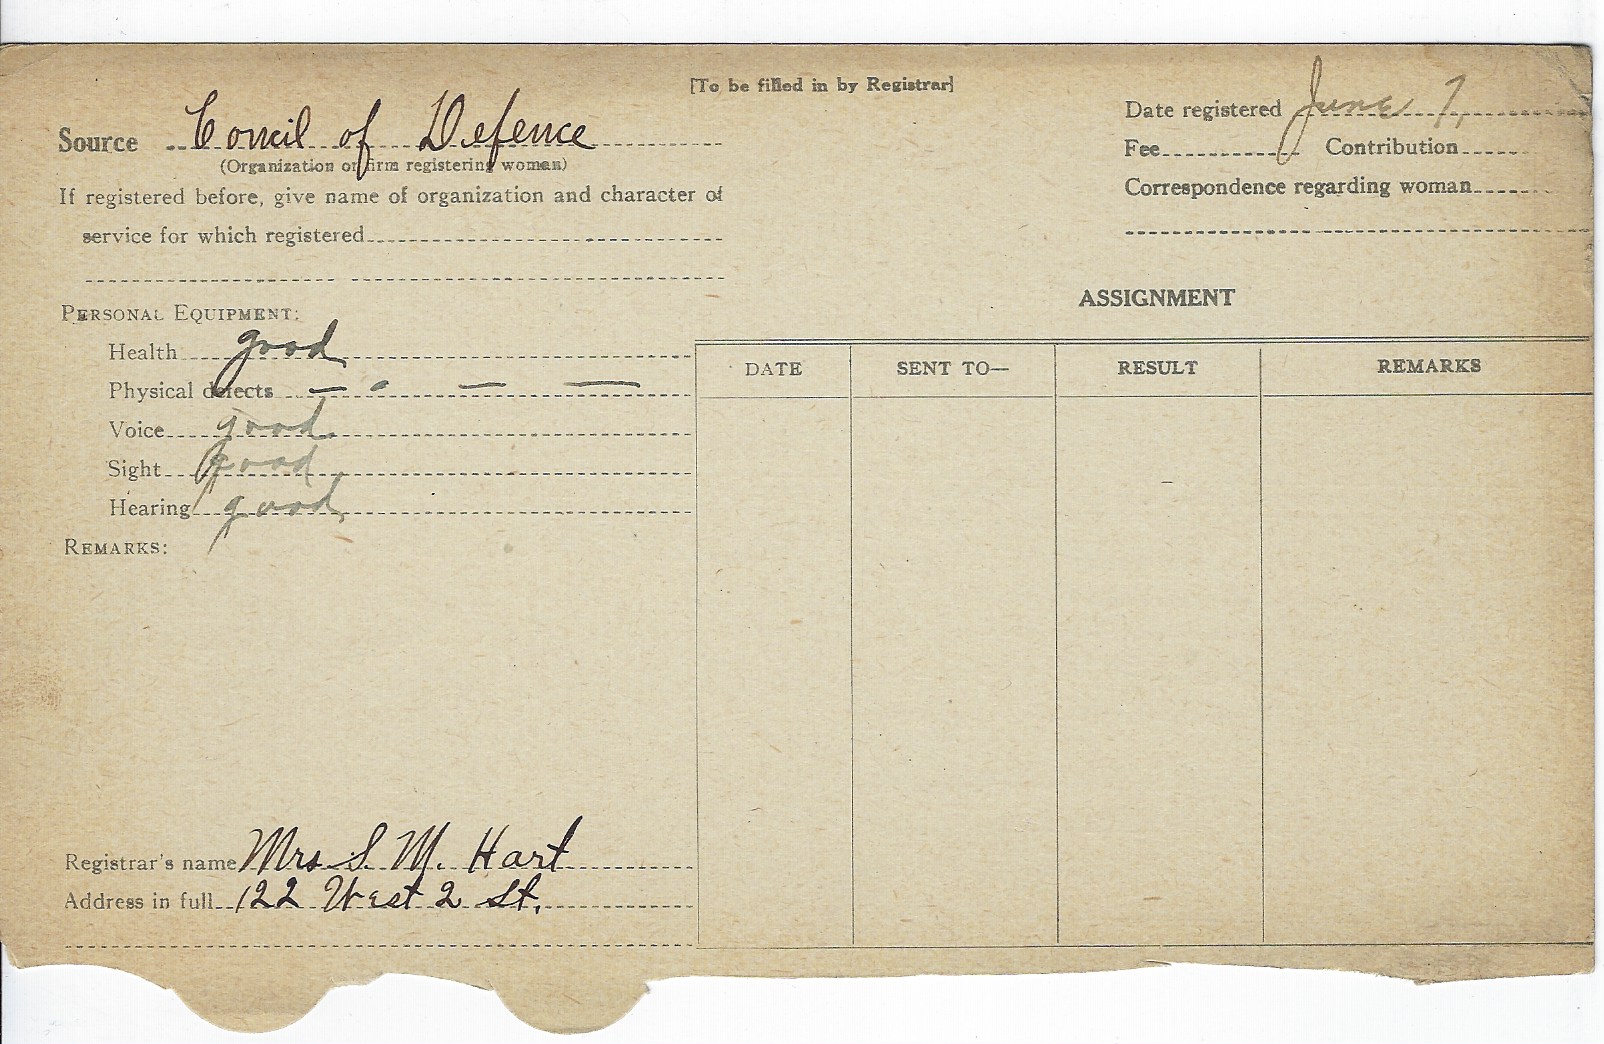 [To be filled in by Registrar]
Source Concil of Defence
(Organization or firm registering woman)
If registered before, give name of organization and character of
service for which registered
Date registered June 7,
Fee Contribution
Correspondence regarding woman
PERSONAL EQUIPMENT:
Health good
Physical defects — — —
Voice good
Sight good
Hearing good
REMARKS:
Registrar's name Mrs S. M. Hart
Address in full 122 West 2 St.
ASSIGNMENT
DATE SENT TO— RESULT REMARKS